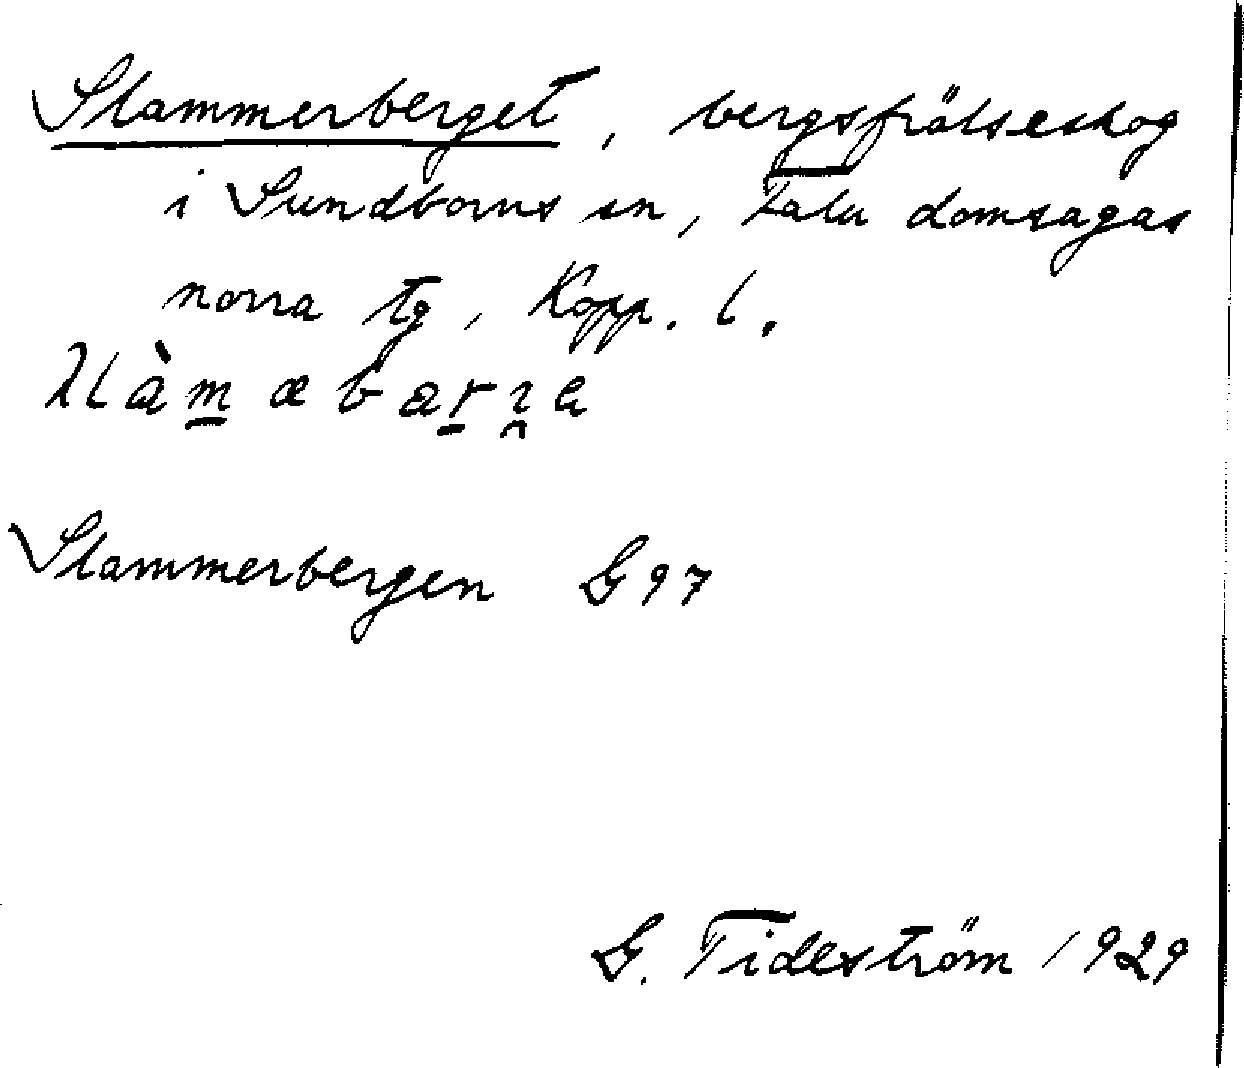 Slammerberget, bergsfrälseskog
i Sundborns sn, Falu domsagas
norra tg, Kopp. l.
Slammerbergen G 97
G. Tideström 1929